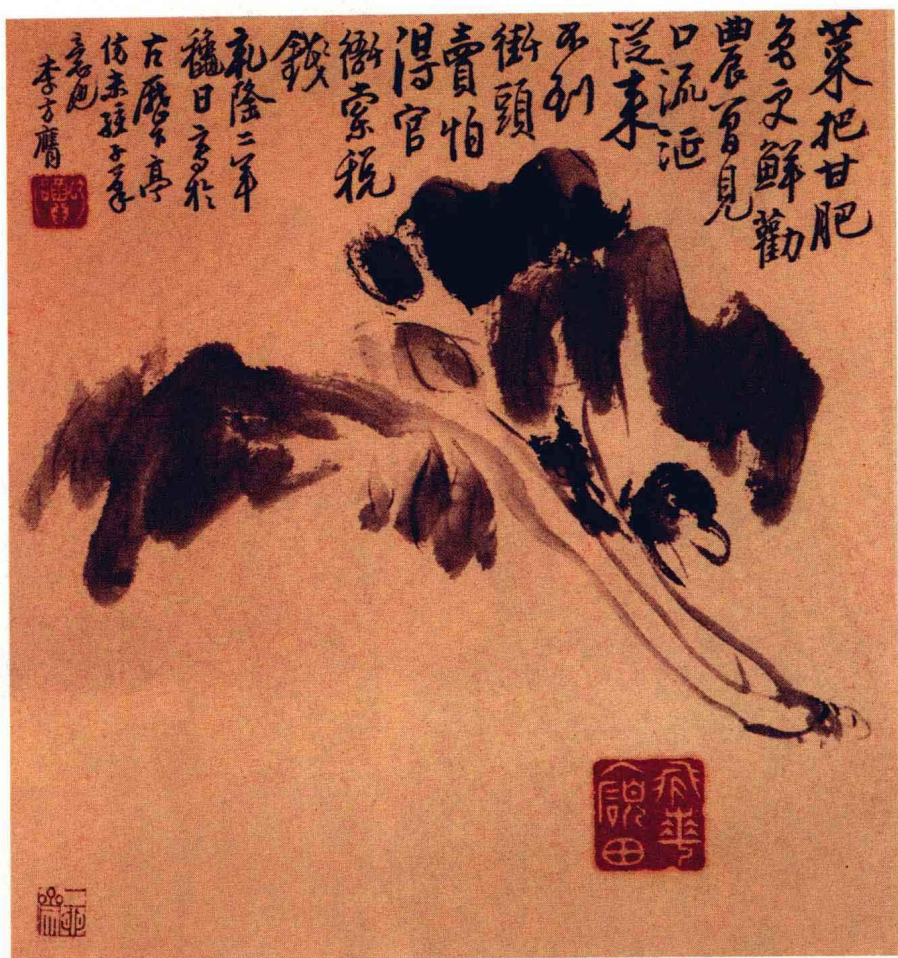 菜把甘肥
色更鮮勸
農曾見
口流涎
從来
不到
街頭
賣怕
得官
衙索税
錢
乾隆二年
穐日寫於
古歷下亭
仿 子筆
意也
李方膺